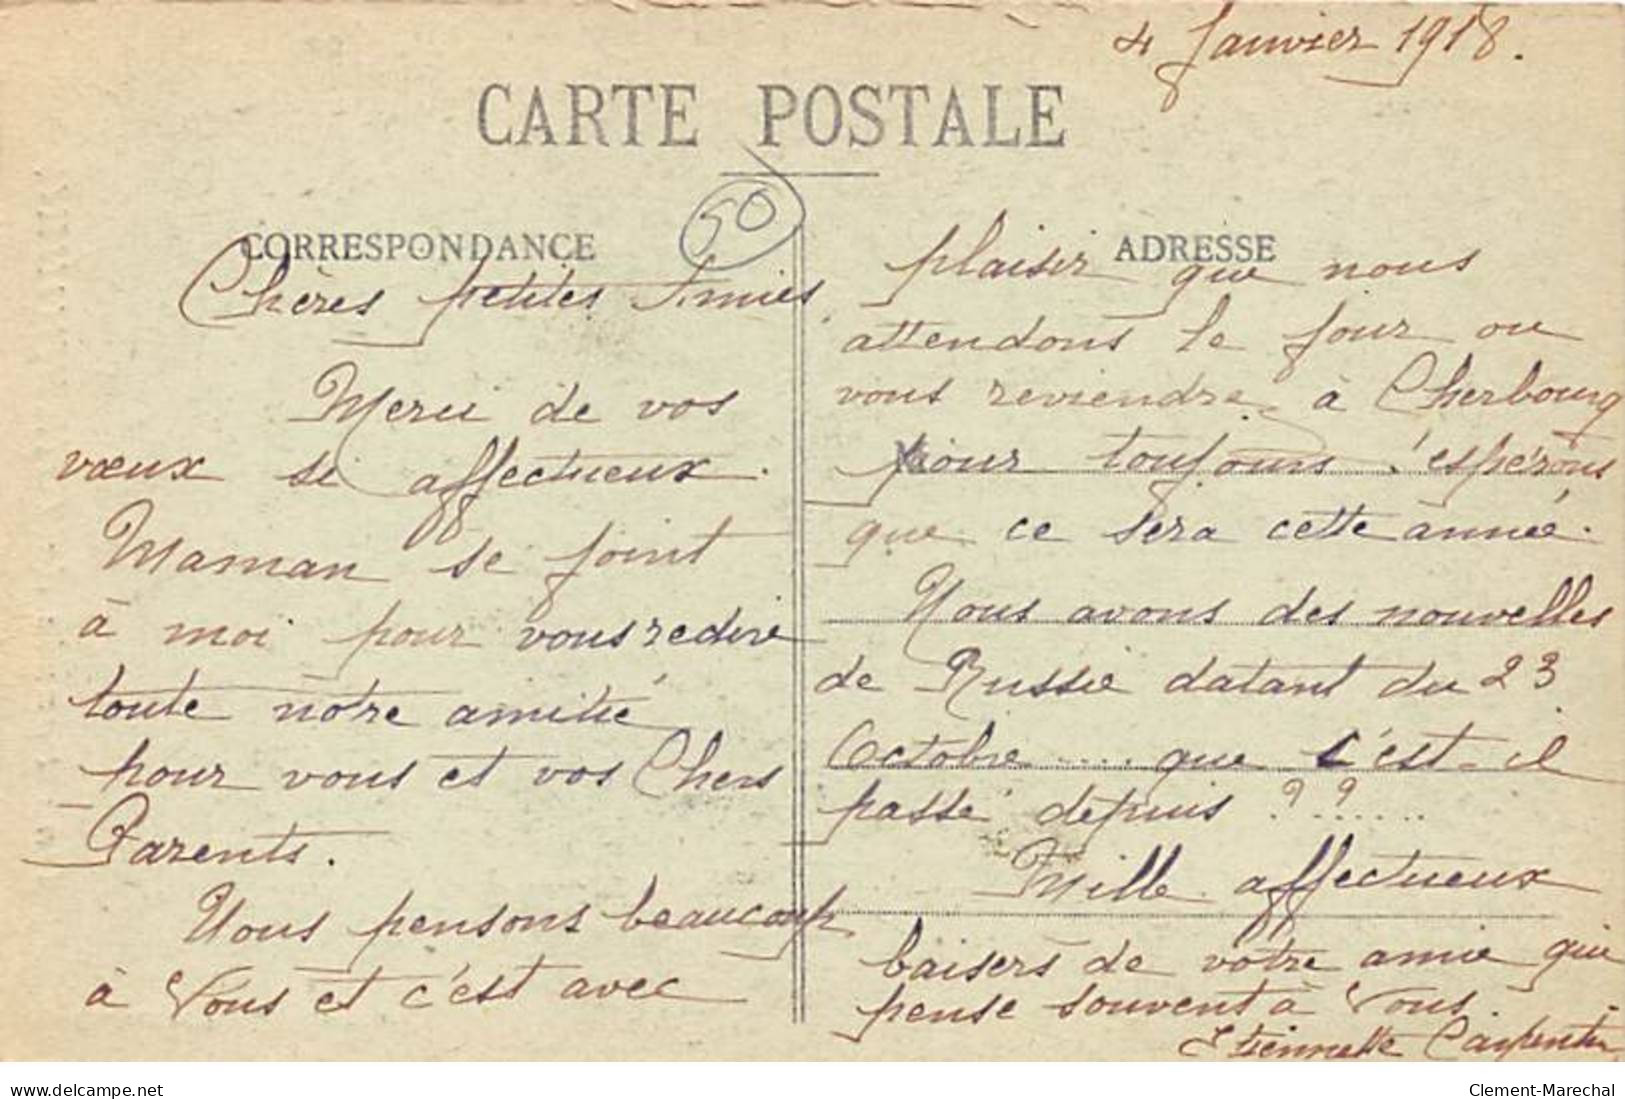 4 Janvier 1918.
CARTE POSTALE
50
CORRESPONDANCE
Chères petites Amies,
Merci de vos
vœux si affectueux.
Maman se joint
à moi pour vous redire
toute notre amitié
pour vous et vos Chers
Parents.
Nous pensons beaucoup
à Vous et c'est avec
ADRESSE
plaisir que nous
attendons le jour ou
vous reviendrez à Cherbourg
pour toujours ! espérons
que ce sera cette année.
Nous avons des nouvelles
de Russie datant du 23
Octobre .... que s'est-il
passé depuis ??......
Mille affectueux
baisers de votre amie qui
pense souvent à Vous.
Etiennette Carpentier
delcampe.net
Clement-Marechal